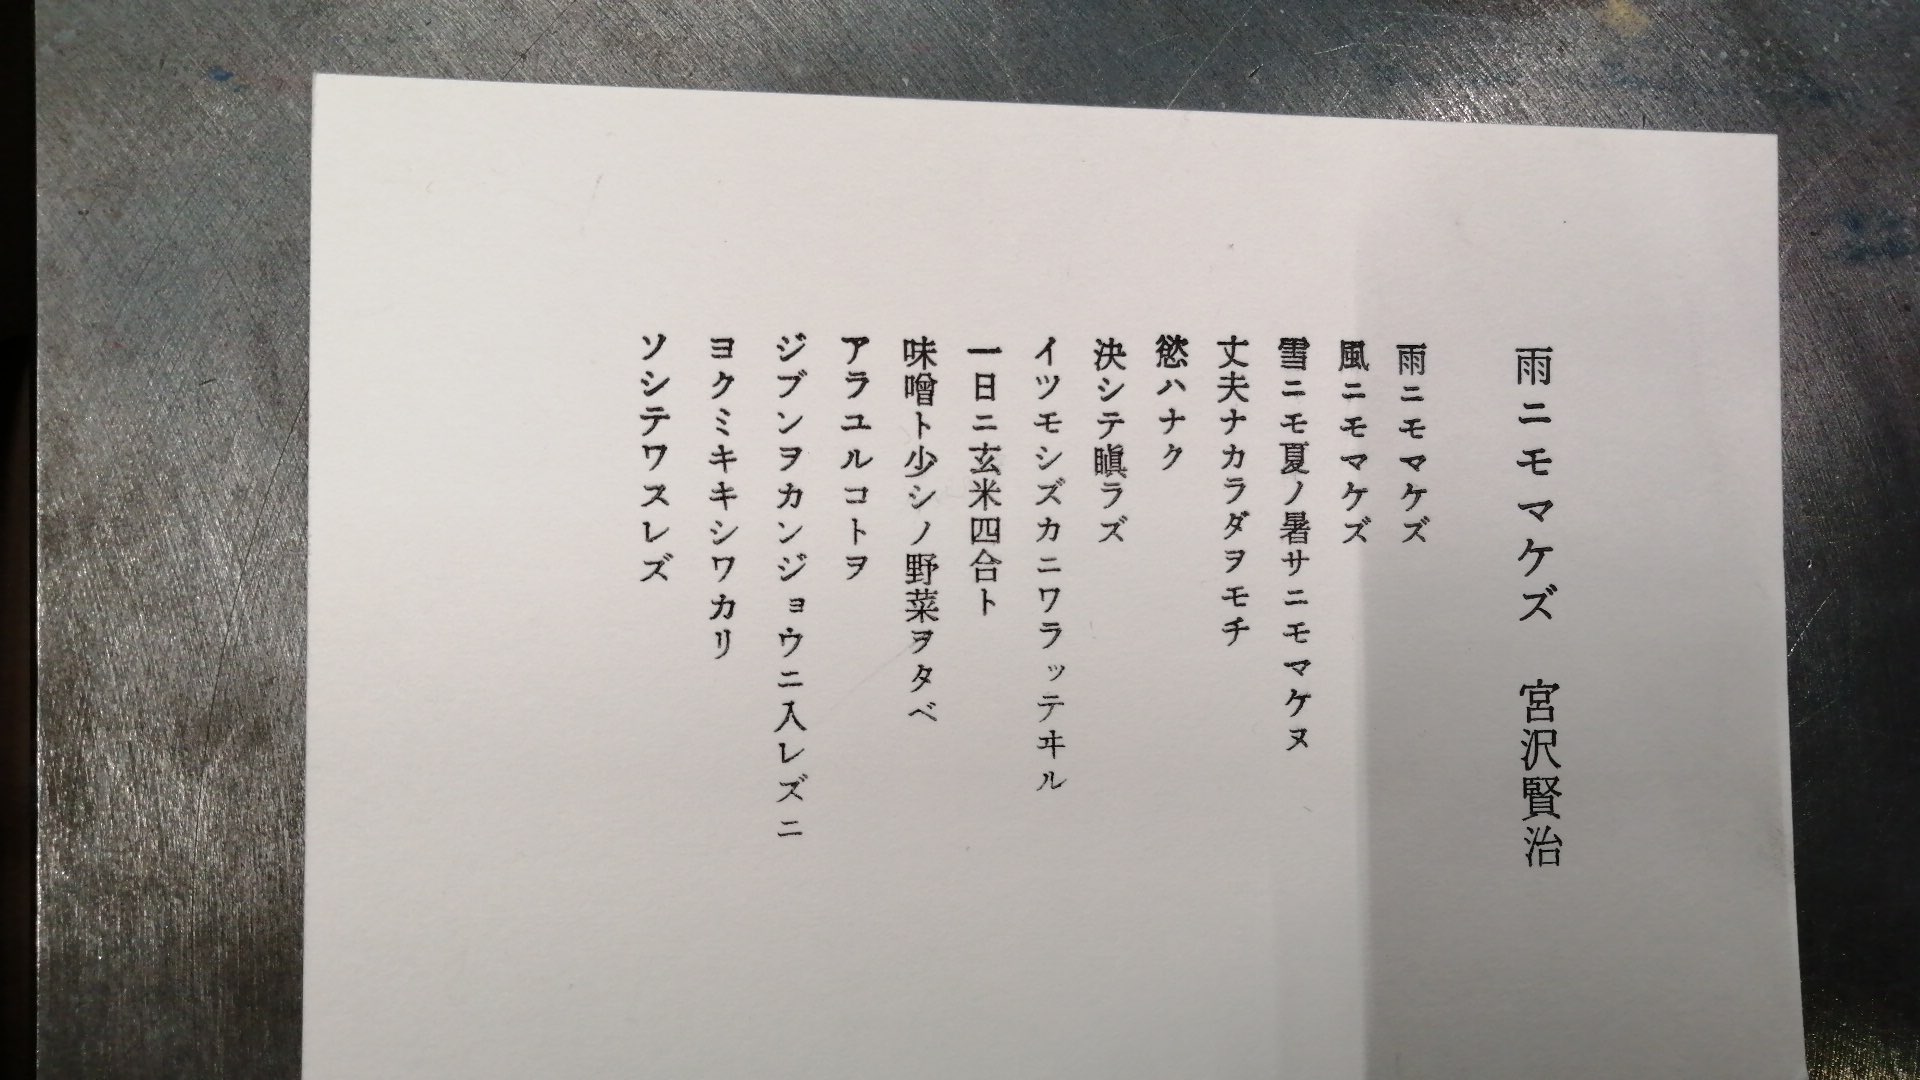 雨ニモマケズ　宮沢賢治
雨ニモマケズ
風ニモマケズ
雪ニモ夏ノ暑サニモマケヌ
丈夫ナカラダヲモチ
慾ハナク
決シテ瞋ラズ
イツモシズカニワラッテヰル
一日ニ玄米四合ト
味噌ト少シノ野菜ヲタベ
アラユルコトヲ
ジブンヲカンジョウニ入レズニ
ヨクミキキシワカリ
ソシテワスレズ